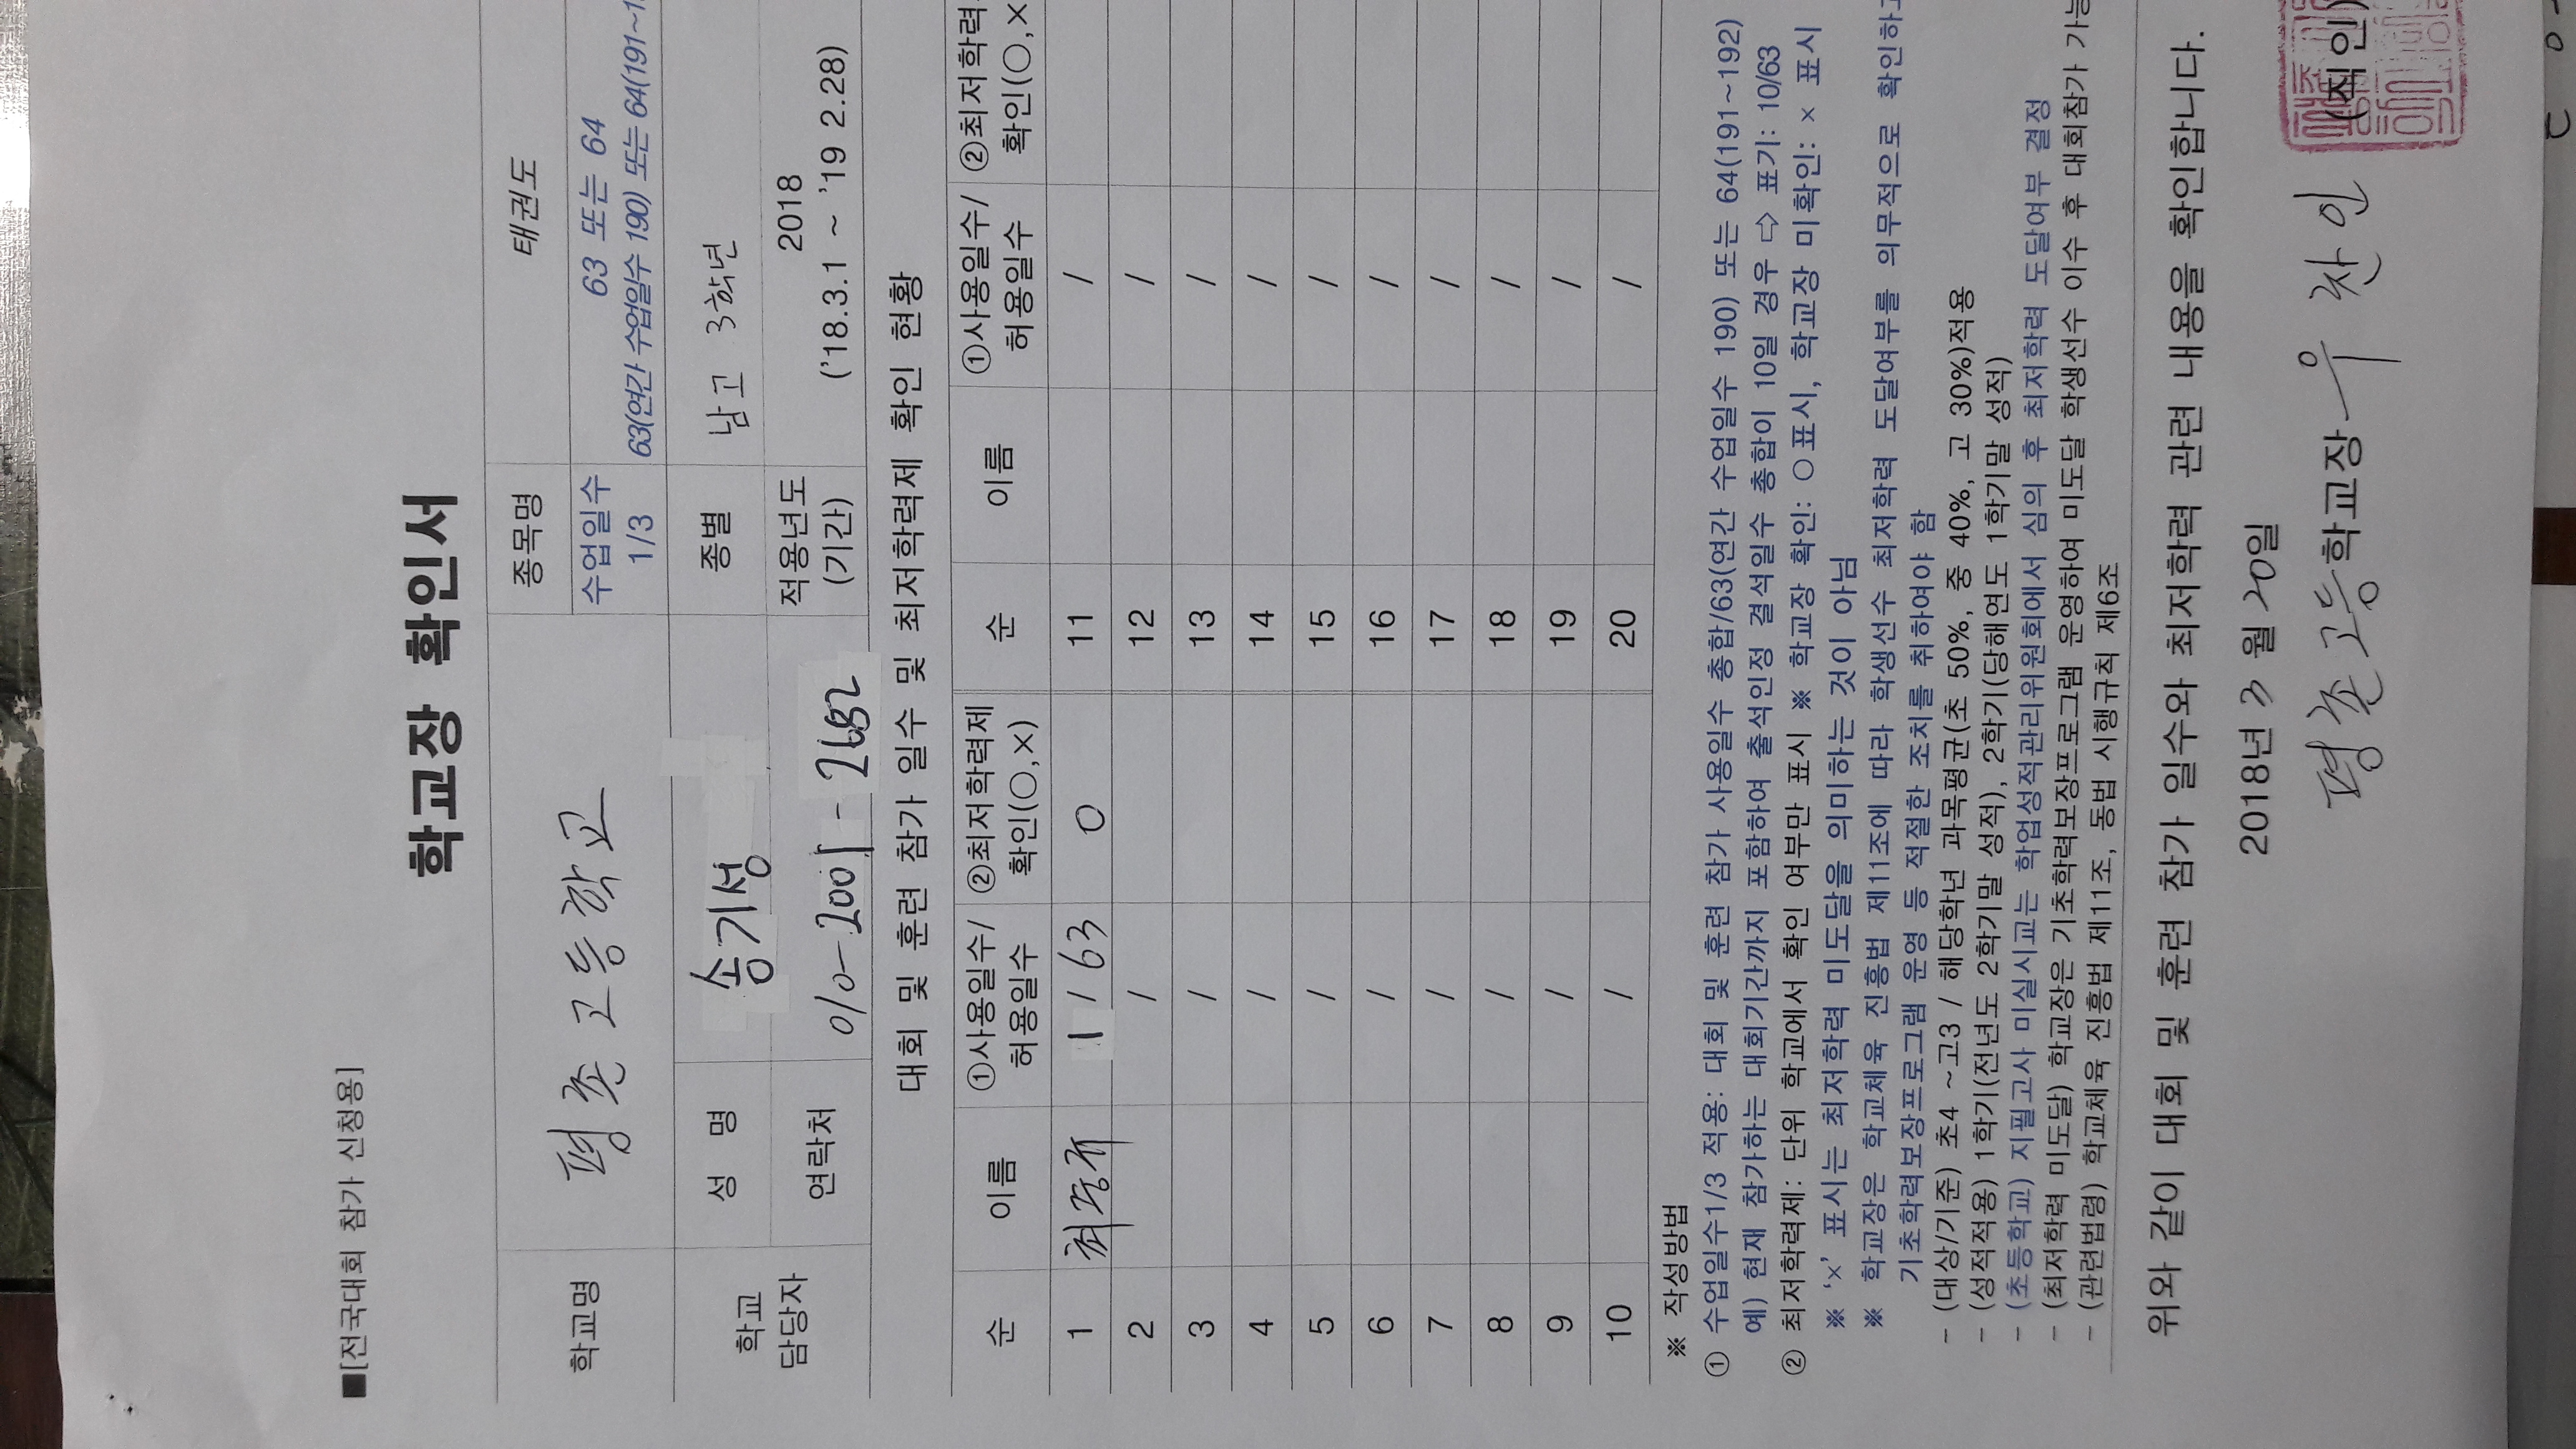 ■[전국대회 참가 신청용]
학교장 확인서
학교명 평촌고등학교 종목명 태권도
수업일수 1/3 63 또는 64
63(연간 수업일수 190) 또는 64(191~1
학교 담당자 성 명 송기성 종별 남고 3학년
연락처 010-2001-2682 적용년도 (기간) 2018 ('18.3.1 ~ '19 2.28)
대회 및 훈련 참가 일수 및 최저학력제 확인 현황
순 이름 ①사용일수/허용일수 ②최저학력제 확인(○,×) 순 이름 ①사용일수/허용일수 ②최저학력 확인(○,×
1 1/63 O 11 /
2 / 12 /
3 / 13 /
4 / 14 /
5 / 15 /
6 / 16 /
7 / 17 /
8 / 18 /
9 / 19 /
10 / 20 /
※ 작성방법
① 수업일수1/3 적용: 대회 및 훈련 참가 사용일수 총합/63(연간 수업일수 190) 또는 64(191~192)
예) 현재 참가하는 대회기간까지 포함하여 출석인정 결석일수 총합이 10일 경우 ⇨ 표기: 10/63
② 최저학력제: 단위 학교에서 확인 여부만 표시 ※ 학교장 확인: ○표시, 학교장 미확인: × 표시
※ ‘×’ 표시는 최저학력 미도달을 의미하는 것이 아님
※ 학교장은 학교체육 진흥법 제11조에 따라 학생선수 최저학력 도달여부를 의무적으로 확인하고
기초학력보장프로그램 운영 등 적절한 조치를 취하여야 함
- (대상/기준) 초4 ~고3 / 해당학년 과목평균(초 50%, 중 40%, 고 30%)적용
- (성적적용) 1학기(전년도 2학기말 성적), 2학기(당해연도 1학기말 성적)
- (초등학교) 지필고사 미실시교는 학업성적관리위원회에서 심의 후 최저학력 도달여부 결정
- (최저학력 미도달) 학교장은 기초학력보장프로그램 운영하여 미도달 학생선수 이수 후 대회참가 가능
- (관련법령) 학교체육 진흥법 제11조, 동법 시행규칙 제6조
위와 같이 대회 및 훈련 참가 일수와 최저학력 관련 내용을 확인합니다.
2018년 3월 20일
평촌고등학교장 우찬인 (직인)